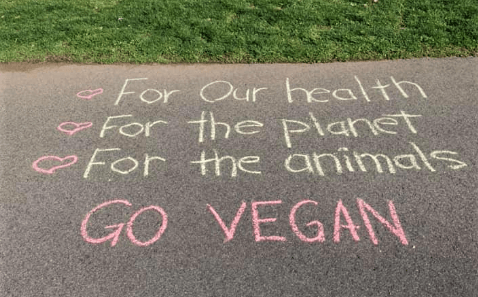 For Our health
For the planet
For the animals
GO VEGAN